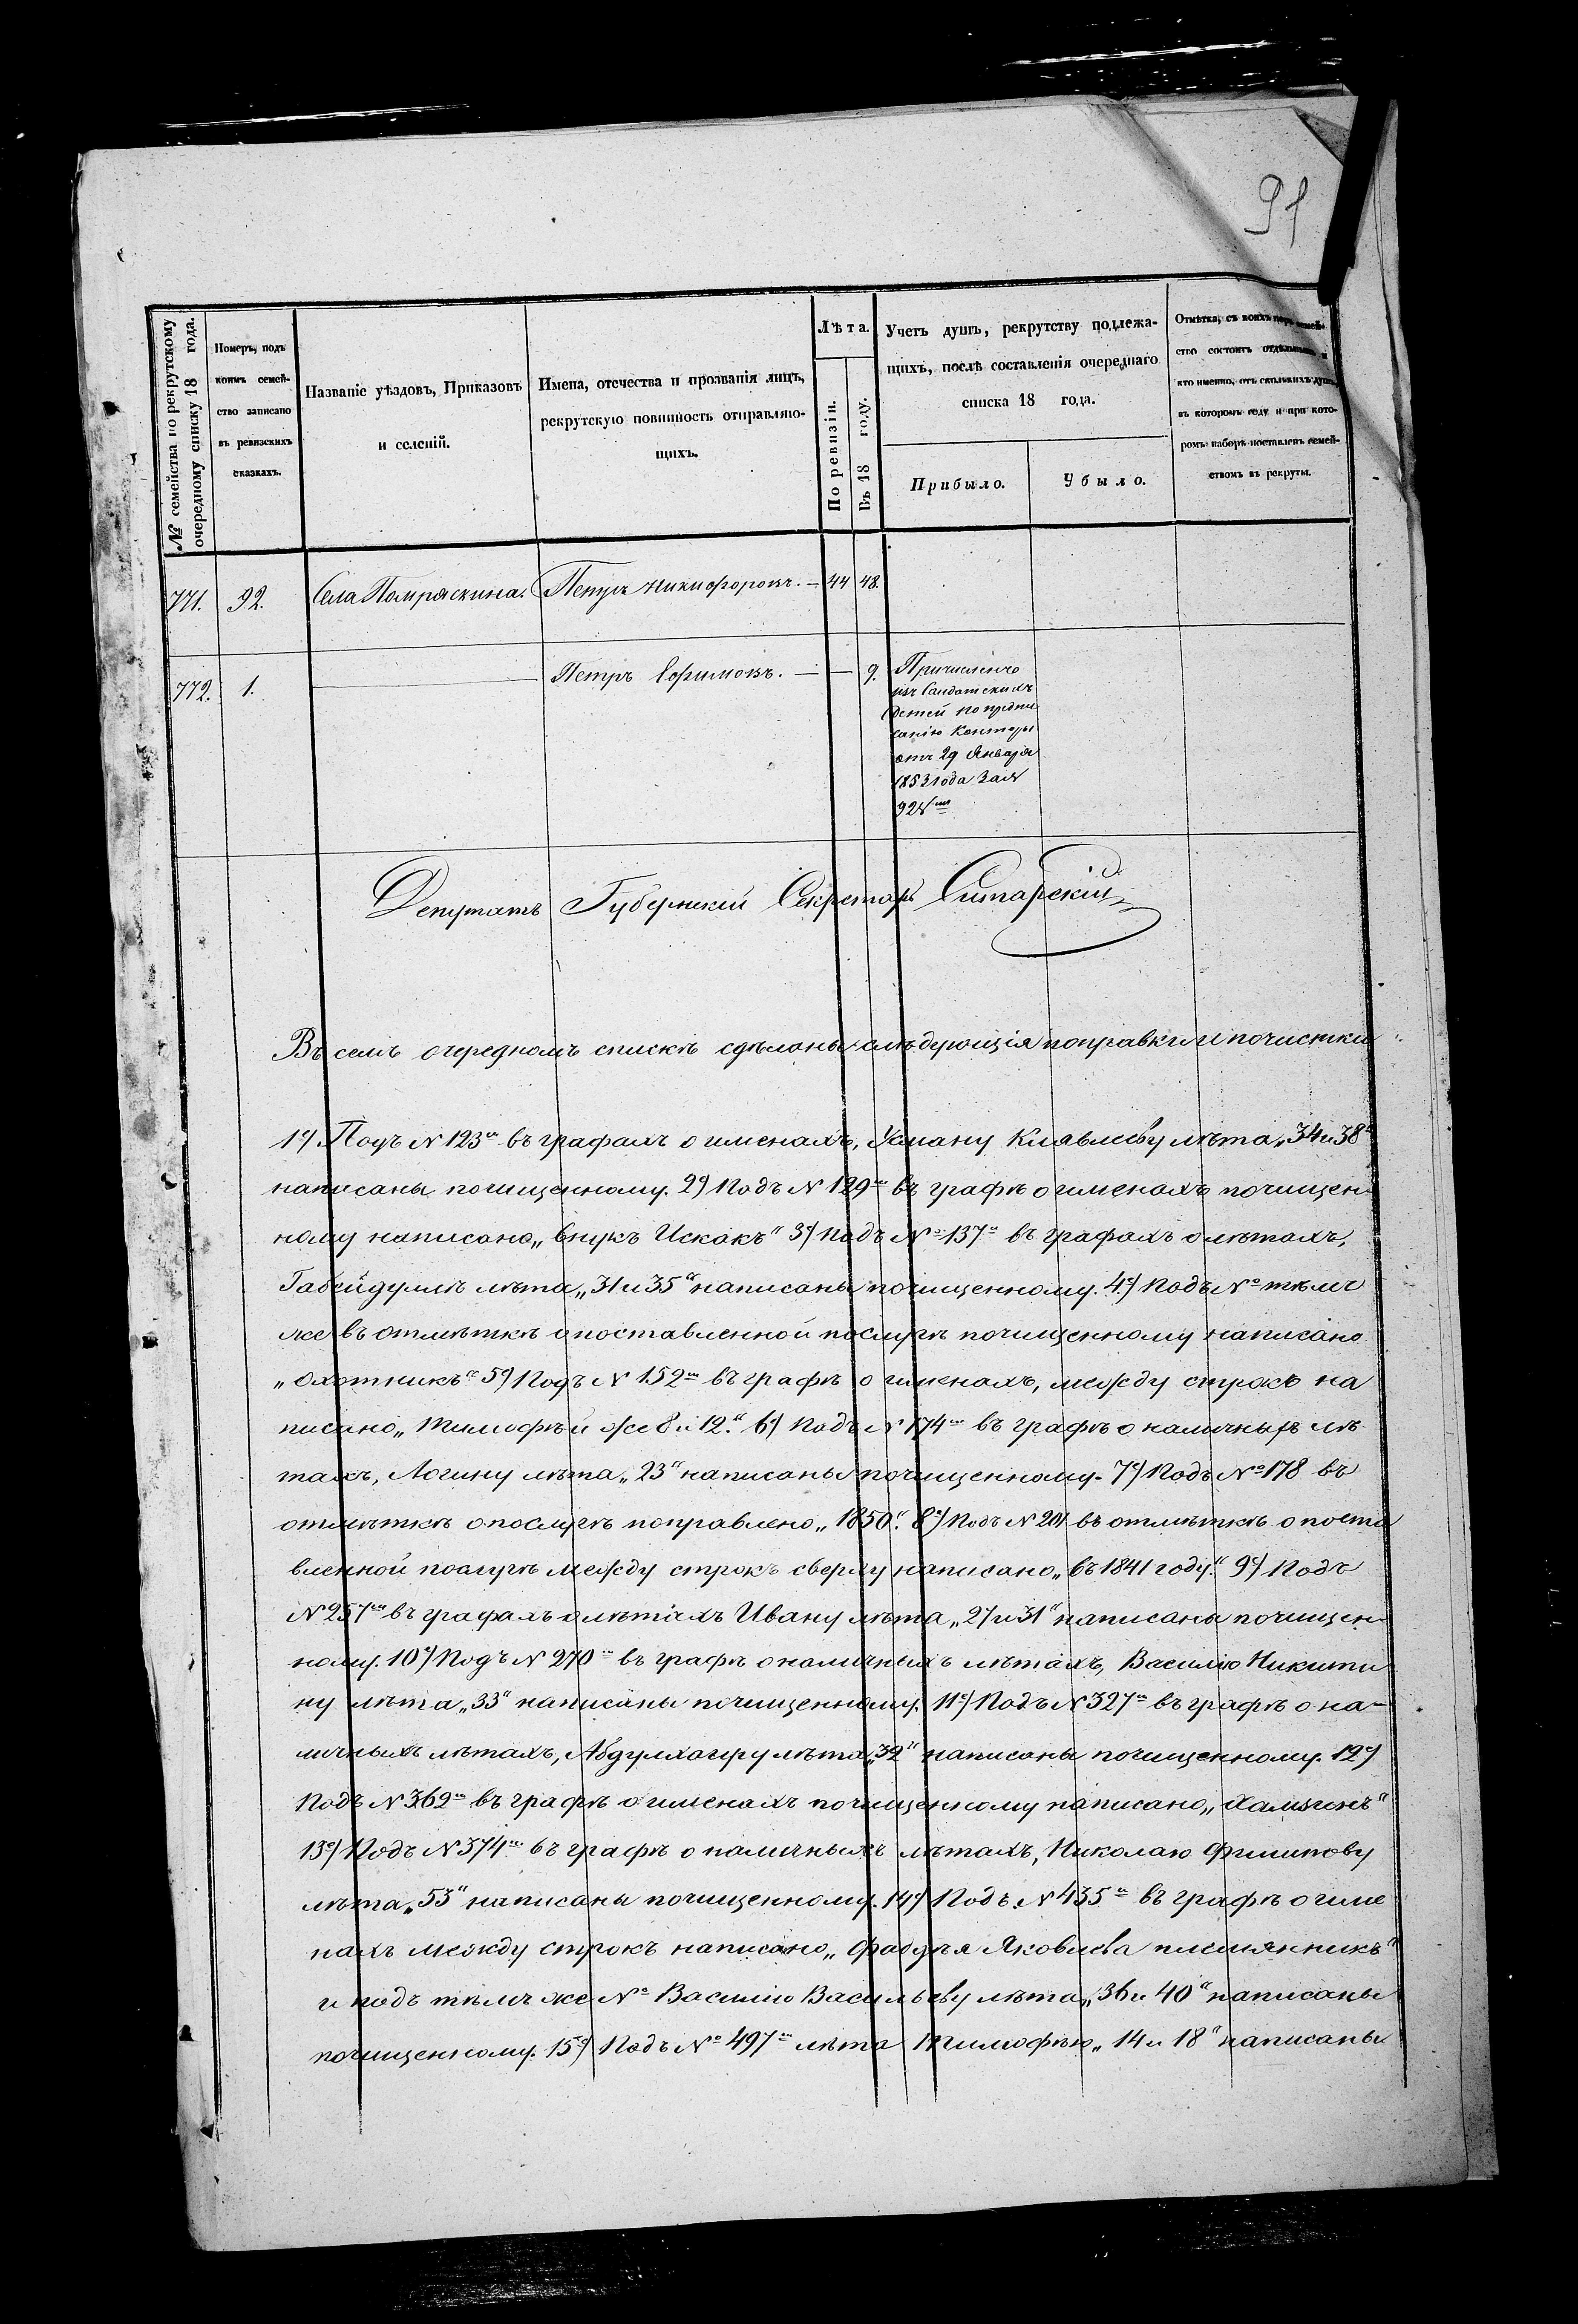 91
№ семейства по рекрутскому
очередному списку 18 года.
Номеръ, подъ
коимъ семей-
ство записано
въ ревизскихъ
сказкахъ.
Названіе уѣздовъ, Приказовъ
и селеній.
Имена, отечества и прозванія лицъ,
рекрутскую повинность отправляю-
щихъ.
Лѣта.
По ревизіи.
Въ 18 году.
Учетъ душъ, рекрутству подлежа-
щихъ, послѣ составленія очереднаго
списка 18 года.
Прибыло.
Убыло.
Отмѣтка, съ коихъ поръ семей-
ство состоитъ отдѣльнымъ, и
кто именно, отъ сколькихъ душъ,
въ которомъ году и при кото-
ромъ наборѣ поставленъ семей-
ствомъ въ рекруты.
771. 92. Села Помряскина. Петръ Никифоровъ. — 44 48.
772. 1. — Петръ Ефимовъ. — — 9. Причисленъ
изъ Солдатскихъ
детей по предпи
санію Конторы
отъ 29 Января
1853 года за №
924
Депутатъ Губернскій Секретарь Ситарскій
Въ семъ очередномъ спискѣ сдѣланы слѣдующія поправки и почистки
1е) Подъ № 123м въ графахъ о именахъ, Усману Клявлееву лѣта „34 и 38"
написаны почищенному. 2е) Подъ № 129м въ графѣ о именахъ почищен-
ному написано „внукъ Искакъ" 3е) Подъ № 137м въ графахъ о лѣтахъ,
Габейдуллѣ лѣта „31 и 35" написаны почищенному. 4е) Подъ № тѣмъ
же въ отмѣткѣ о поставленной послугѣ почищенному написано
„охотникъ" 5е) Подъ № 152м въ графѣ о именахъ, между строкъ на
писано „Тимофѣй же 8 и 12." 6е) Подъ № 174м въ графѣ о наличныхъ лѣ
тахъ, Логину лѣта „23" написаны почищенному. 7е) Подъ № 178 въ
отмѣткѣ о послугѣ поправлено „1850". 8е) Подъ № 201 въ отмѣткѣ о поста
вленной послугѣ между строкъ сверху написано „въ 1841 году." 9е) Подъ
№ 257м въ графахъ о лѣтахъ Ивану лѣта „27 и 31" написаны почищен-
ному. 10е) Подъ № 270м въ графѣ о наличныхъ лѣтахъ, Василію Никити
ну лѣта „33" написаны почищенному. 11е) Подъ № 327м въ графѣ о на-
личныхъ лѣтахъ, Абдулхагиру лѣта „32" написаны почищенному. 12е)
Подъ № 362м въ графѣ о именахъ почищенному написано „Хамзинъ"
13е) Подъ № 374м въ графѣ о наличныхъ лѣтахъ, Николаю Филипову
лѣта „53" написаны почищенному. 14е) Подъ № 435м въ графѣ о име
нахъ между строкъ написано „Фадѣя Яковлева племянникъ"
и подъ тѣмъ же № Василію Васильеву лѣта „36 и 40" написаны
почищенному. 15е) Подъ № 497м лѣта Тимофѣю „14 и 18" написаны